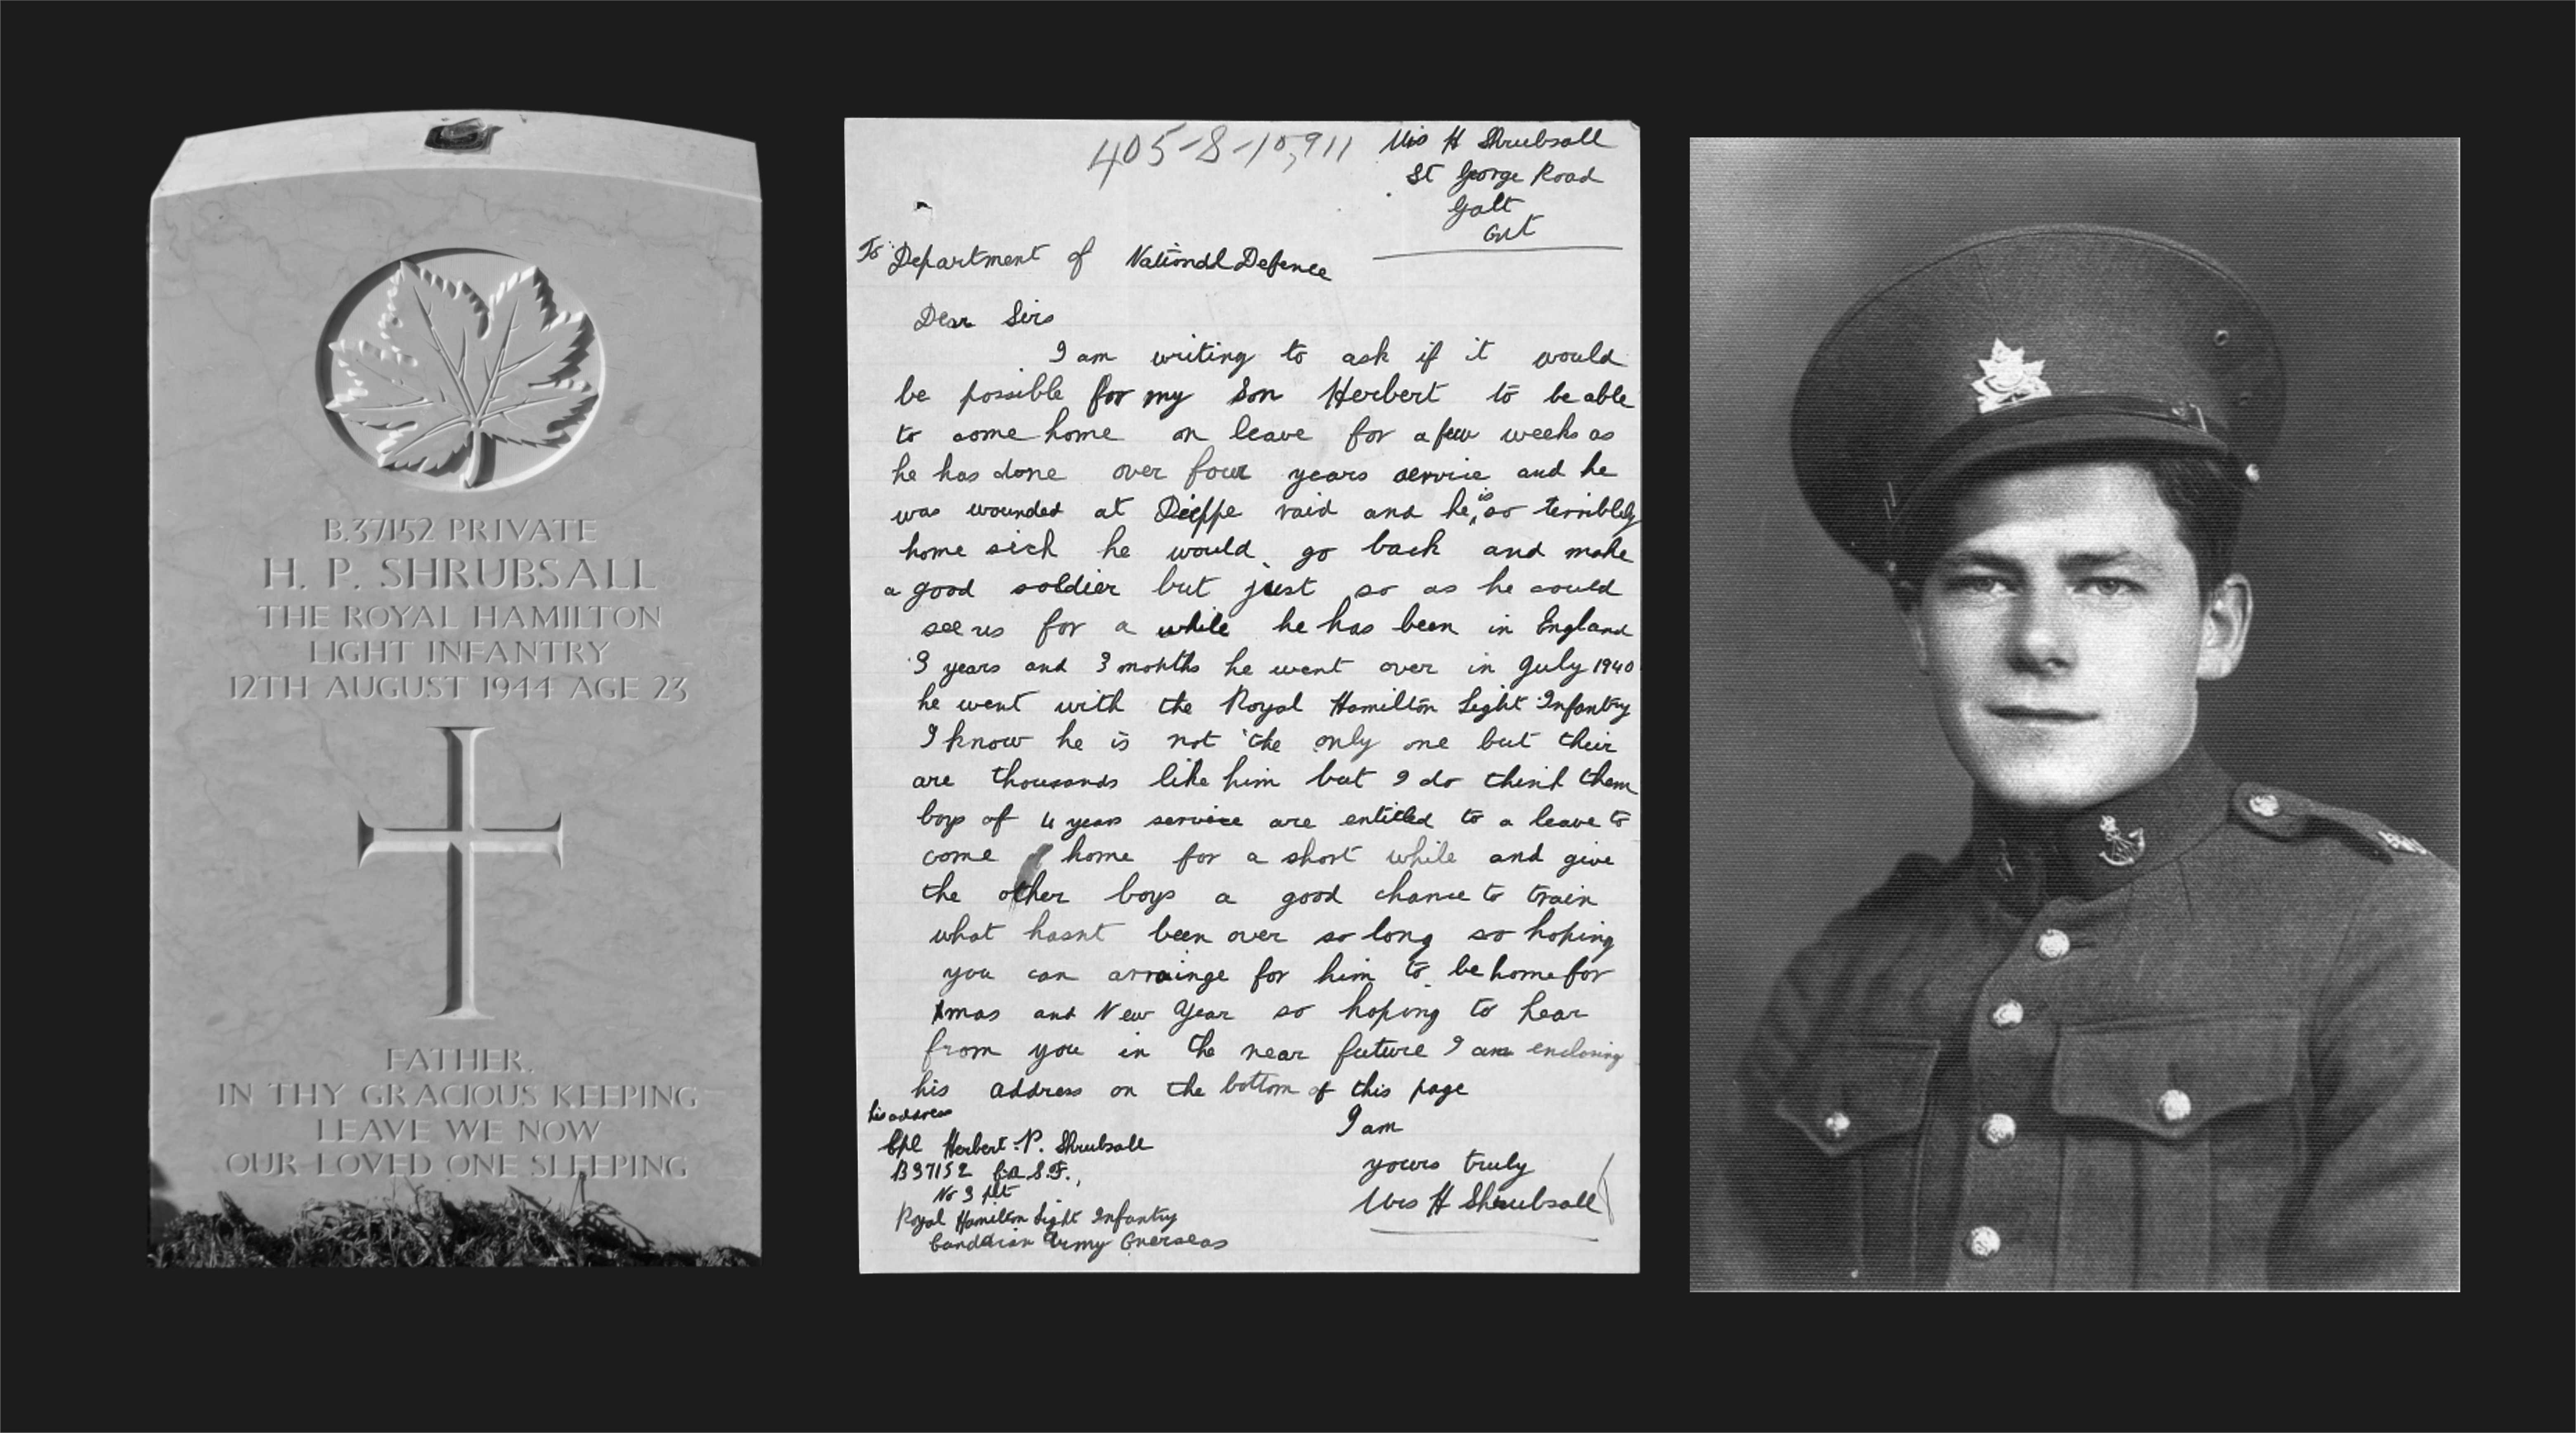 B.37152 PRIVATE
H. P. SHRUBSALL
THE ROYAL HAMILTON
LIGHT INFANTRY
12TH AUGUST 1944 AGE 23
FATHER,
IN THY GRACIOUS KEEPING
LEAVE WE NOW
OUR LOVED ONE SLEEPING
405-8-10,911
Mrs H Shrubsall
St George Road
Galt
Ont
To Department of National Defence
Dear Sirs
I am writing to ask if it would
be possible for my Son Herbert to be able
to come home on leave for a few weeks as
he has done over four years service and he
was wounded at Dieppe raid and he is so terribly
home sick he would go back and make
a good soldier but just so as he could
see us for a while he has been in England
3 years and 3 months he went over in July 1940
he went with the Royal Hamilton Light Infantry
I know he is not the only one but their
are thousands like him but I do think them
boys of 4 years service are entitled to a leave to
come home for a short while and give
the other boys a good chance to train
what hasnt been over so long so hoping
you can arrainge for him to be home for
Xmas and New Year so hoping to hear
from you in the near future I am enclosing
his address on the bottom of this page
his address
Cpl Herbert. P. Shrubsall
B37152 Ca. S.F.,
No 3 plt
Royal Hamilton Light Infantry
Canadian Army Overseas
I am
yours truly
Mrs H Shrubsall